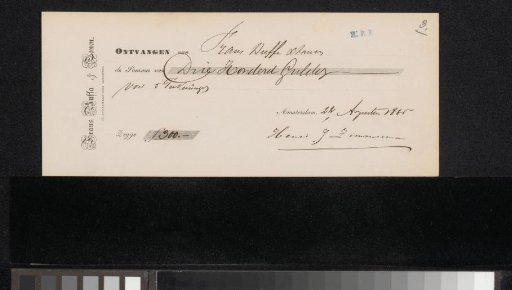 Frans Buffa & Zonen.
ONTVANGEN van Frans Buffa & Zonen
de Somma van Drie Honderd Gulden
voor 3 Teekeningen
Amsterdam, 24 Augustus
Zegge f 300.-
Henri J Zimmerman